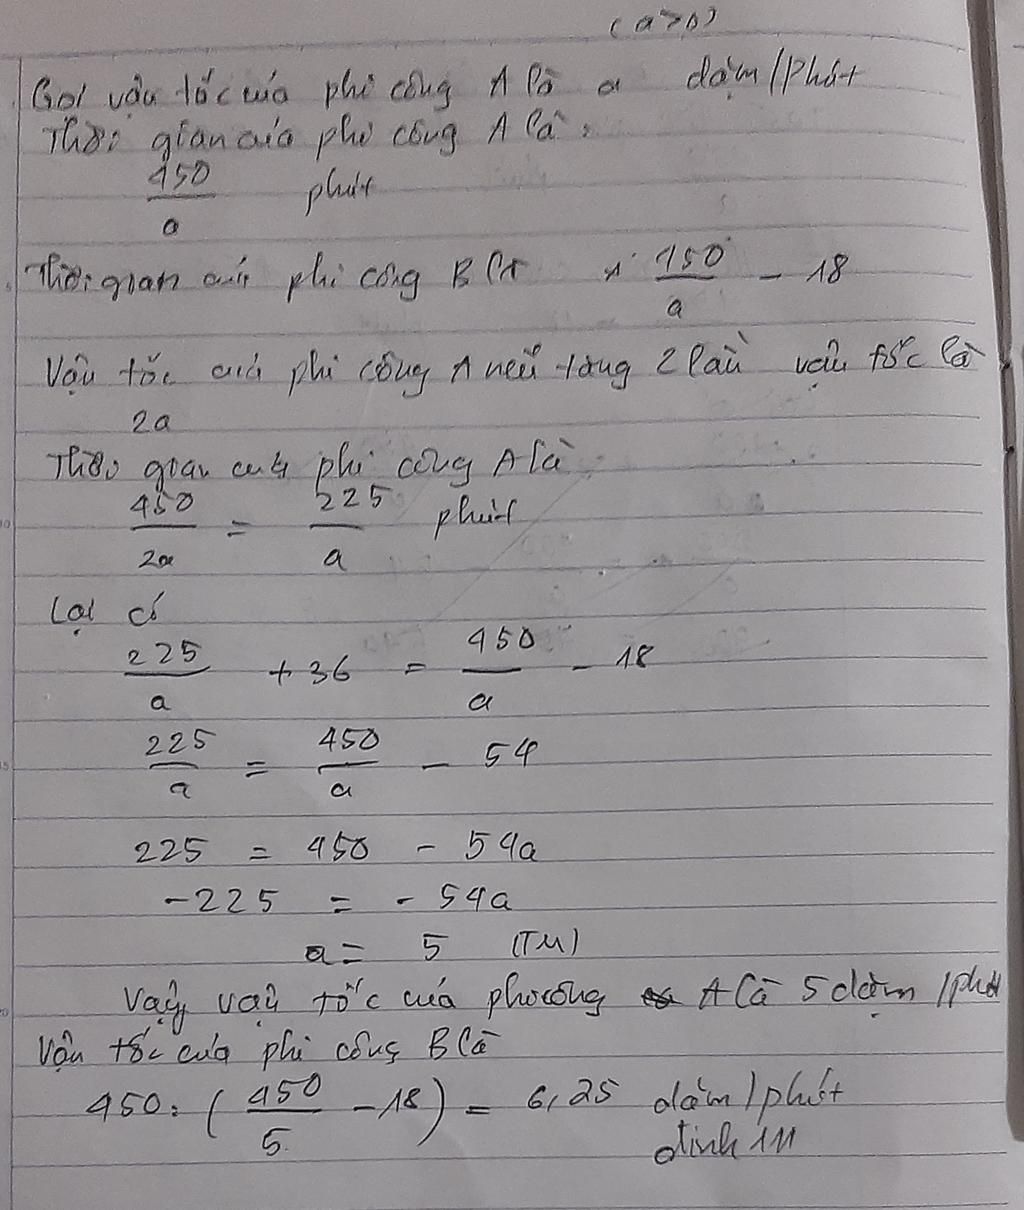 (a>0)
Gọi vận tốc của phi công A là a dặm/Phút
Thời gian của phi công A là :
450/a phút
Thời gian của phi công B là : 450/a - 18
Vận tốc của phi công A nếu tăng 2 lần vận tốc là
2a
Thời gian của phi công A là :
450/2a = 225/a phút
Lại có
225/a + 36 = 450/a - 18
225/a = 450/a - 54
225 = 450 - 54a
-225 = -54a
a = 5 (TM)
Vậy vận tốc của phi công A là 5 dặm/phút
Vận tốc của phi công B là
450 : (450/5 - 18) = 6,25 dặm/phút